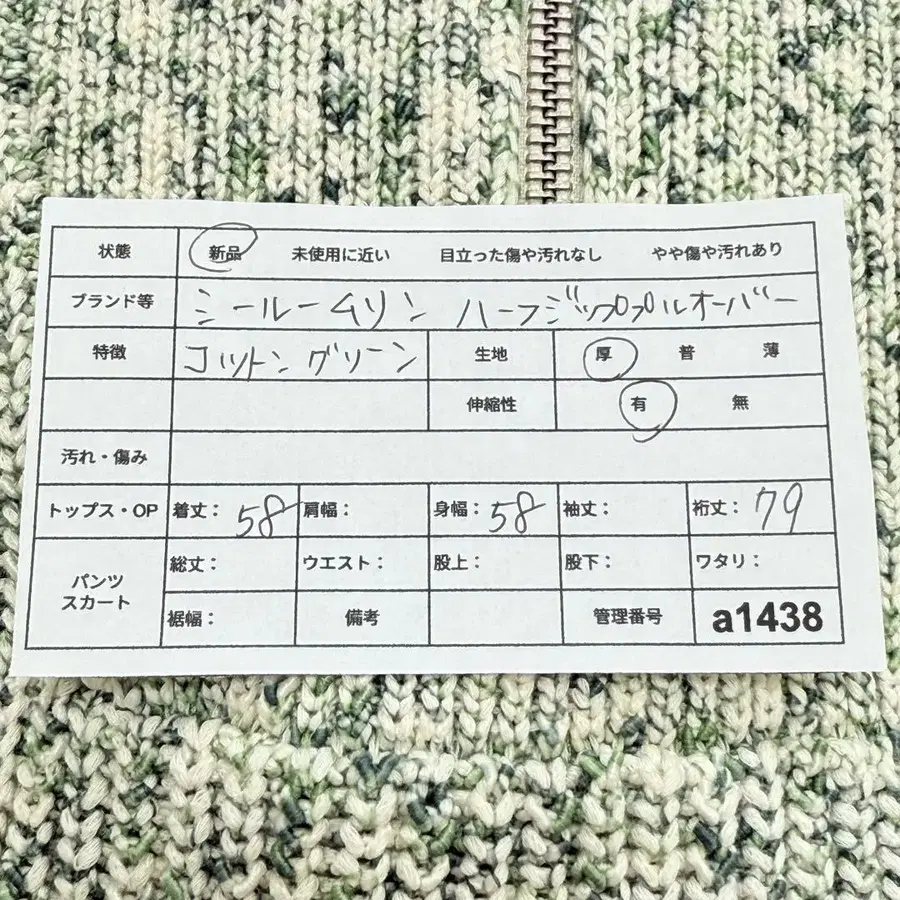 状態 新品 未使用に近い 目立った傷や汚れなし やや傷や汚れあり
ブランド等 シールームリン ハーフジッププルオーバー
特徴 コットン グリーン 生地 厚 普 薄
伸縮性 有 無
汚れ・傷み
トップス・OP 着丈: 58 肩幅: 身幅: 58 袖丈: 裄丈: 79
パンツ スカート 総丈: ウエスト: 股上: 股下: ワタリ:
裾幅: 備考 管理番号 a1438